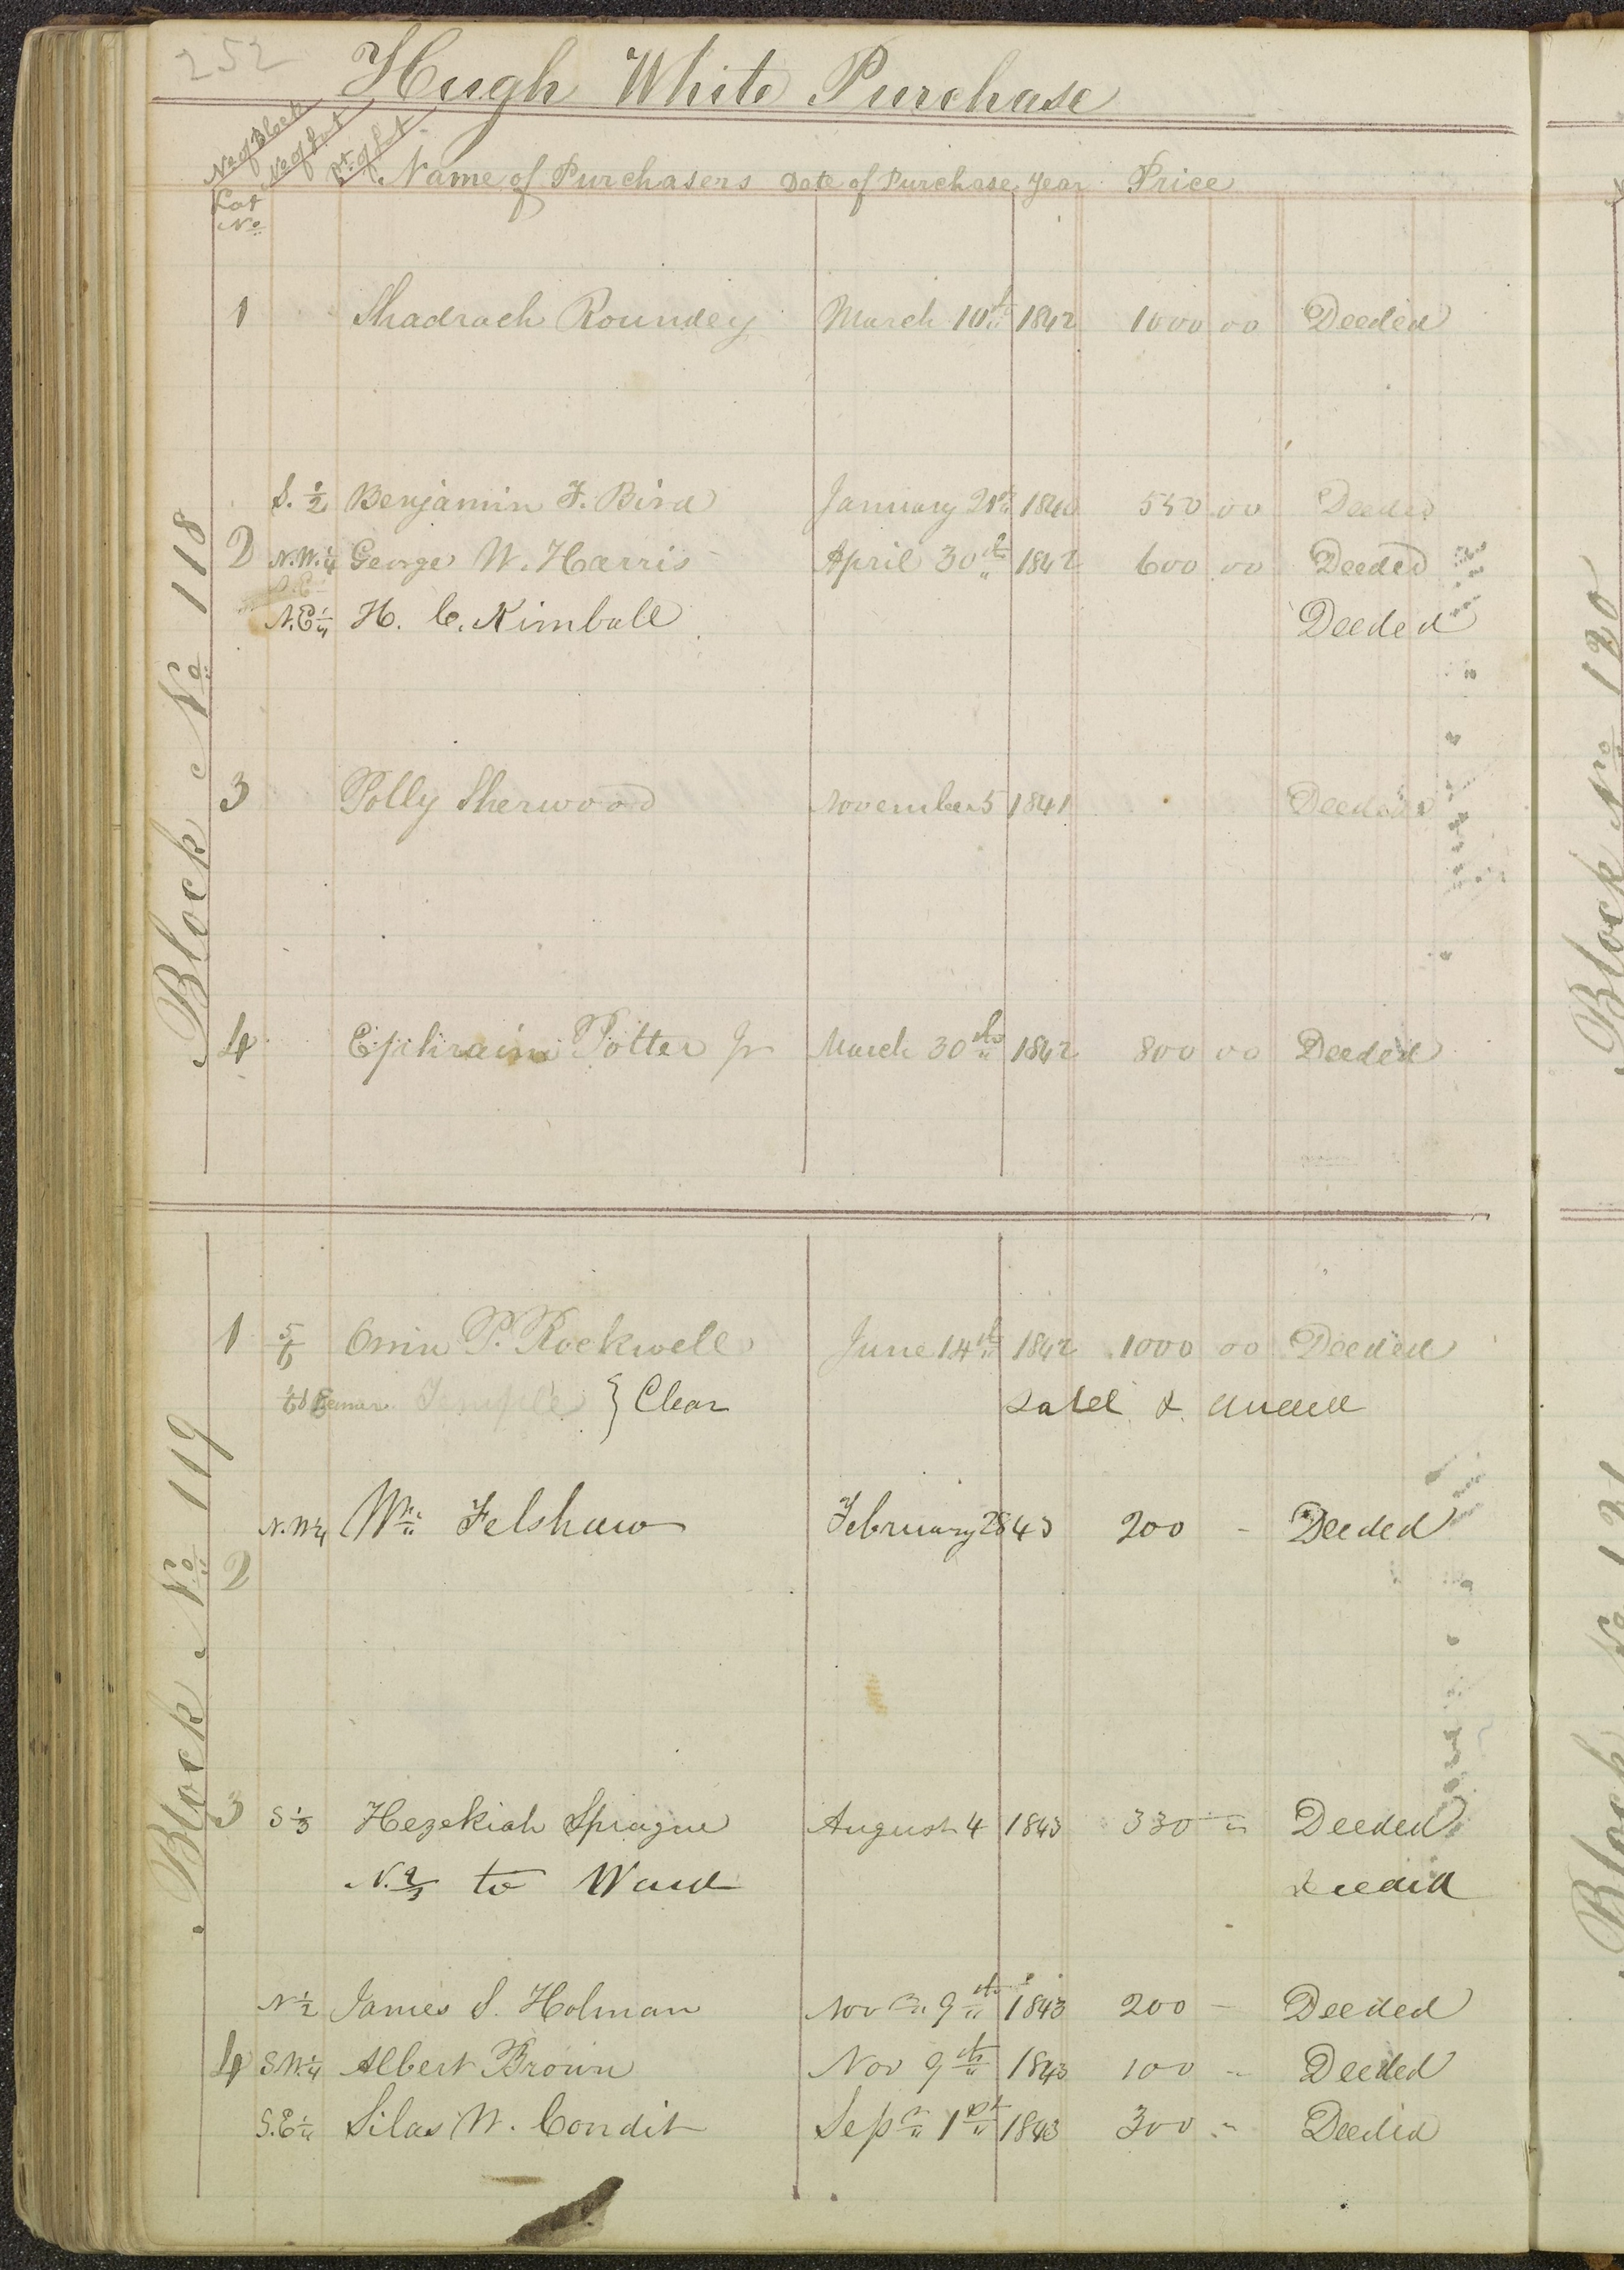 252
Hugh White Purchase
No of Block No of Lot Pt. of Lot Name of Purchasers Date of Purchase Year Price
Lot No
Block No 118
1 Shadrach Roundey March 10th 1842 1000 00 Deeded
S. 1/2 Benjamin F. Bird January 1840 550 00 Deeded
2 N.W. 1/4 George W. Harris April 30th 1842 600 00 Deeded
N.E 1/4 H. C. Kimball Deeded
3 Polly Sherwood November 5 1841 Deeded
4 Ephraim Potter Jr March 30th 1842 800 00 Deeded
Block No 119
1 5/6 Orrin P. Rockwell June 14th 1842 1000 00 Deeded
Temple } Clear
N.W 1/4 Wm Felshaw February 28 43 200 - Deeded
2
3 S 1/3 Hezekiah Sprague August 4 1843 330 " Deeded
N. 2/3 to Ward Deeded
N 1/2 James S. Holman Nov 9th 1843 200 - Deeded
4 S.W. 1/4 Albert Brown Nov 9th 1843 100 - Deeded
S.E 1/4 Silas W. Condit Sepr 1st 1843 300 - Deeded
Block No 120
Block No 121